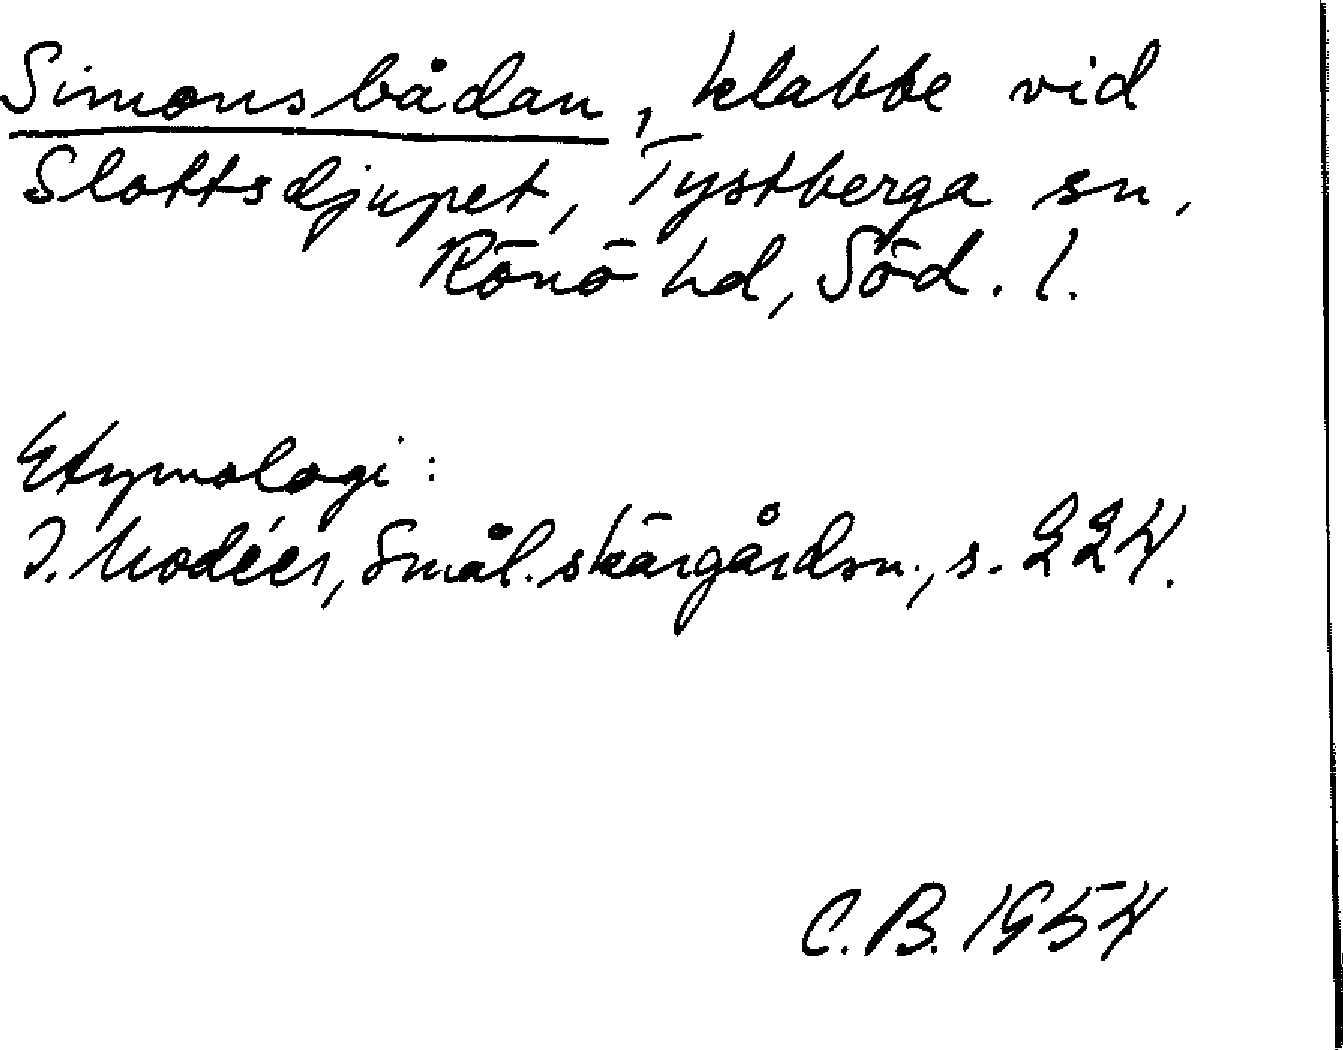 Simonsbådan, klabbe vid
Slottsdjupet, Tystberga sn,
Rönö hd, Söd. l.
Etymologi:
I. Modéer, Smål. skärgårdsn., s. 224.
C. B. 1954